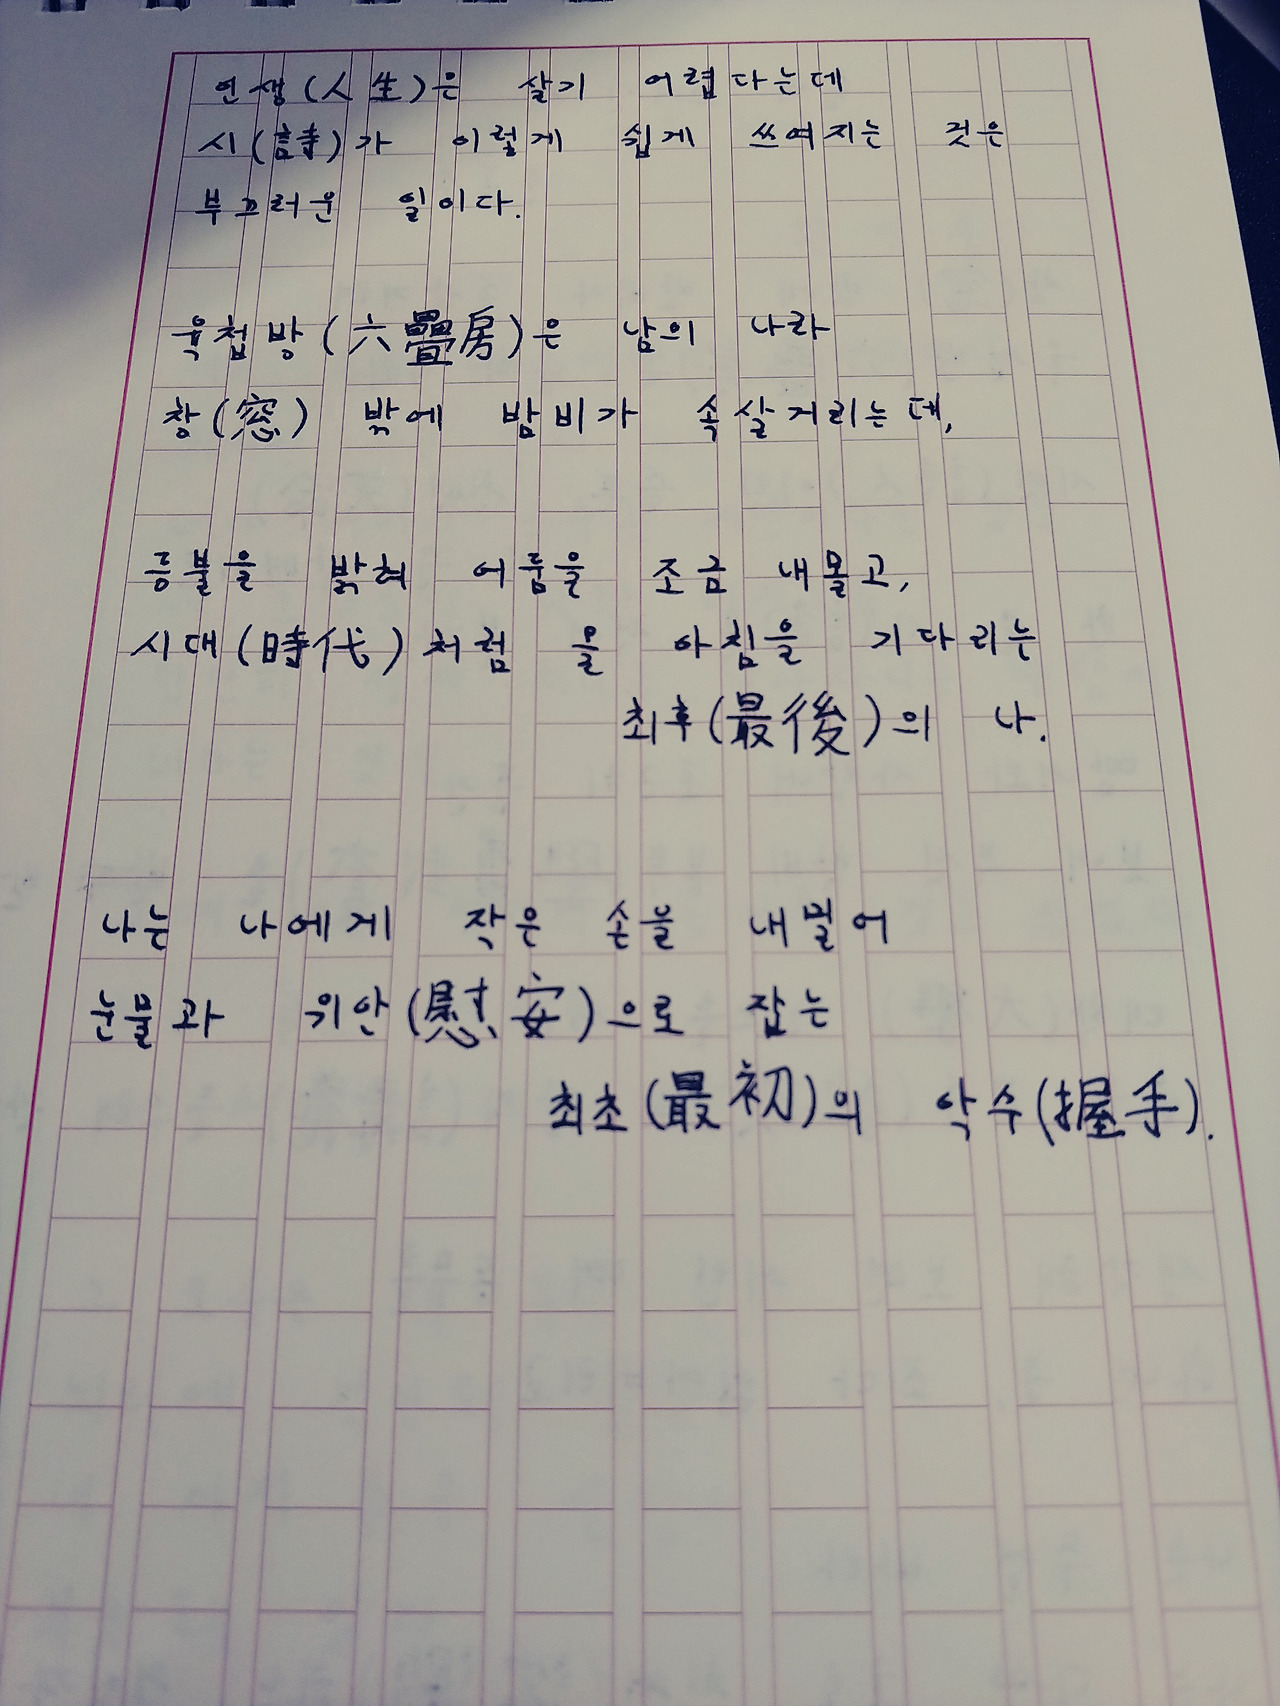 인생(人生)은 살기 어렵다는데
시(詩)가 이렇게 쉽게 쓰여지는 것은
부끄러운 일이다.
육첩방(六疊房)은 남의 나라
창(窓) 밖에 밤비가 속살거리는데,
등불을 밝혀 어둠을 조금 내몰고,
시대(時代)처럼 올 아침을 기다리는
최후(最後)의 나.
나는 나에게 작은 손을 내밀어
눈물과 위안(慰安)으로 잡는
최초(最初)의 악수(握手).